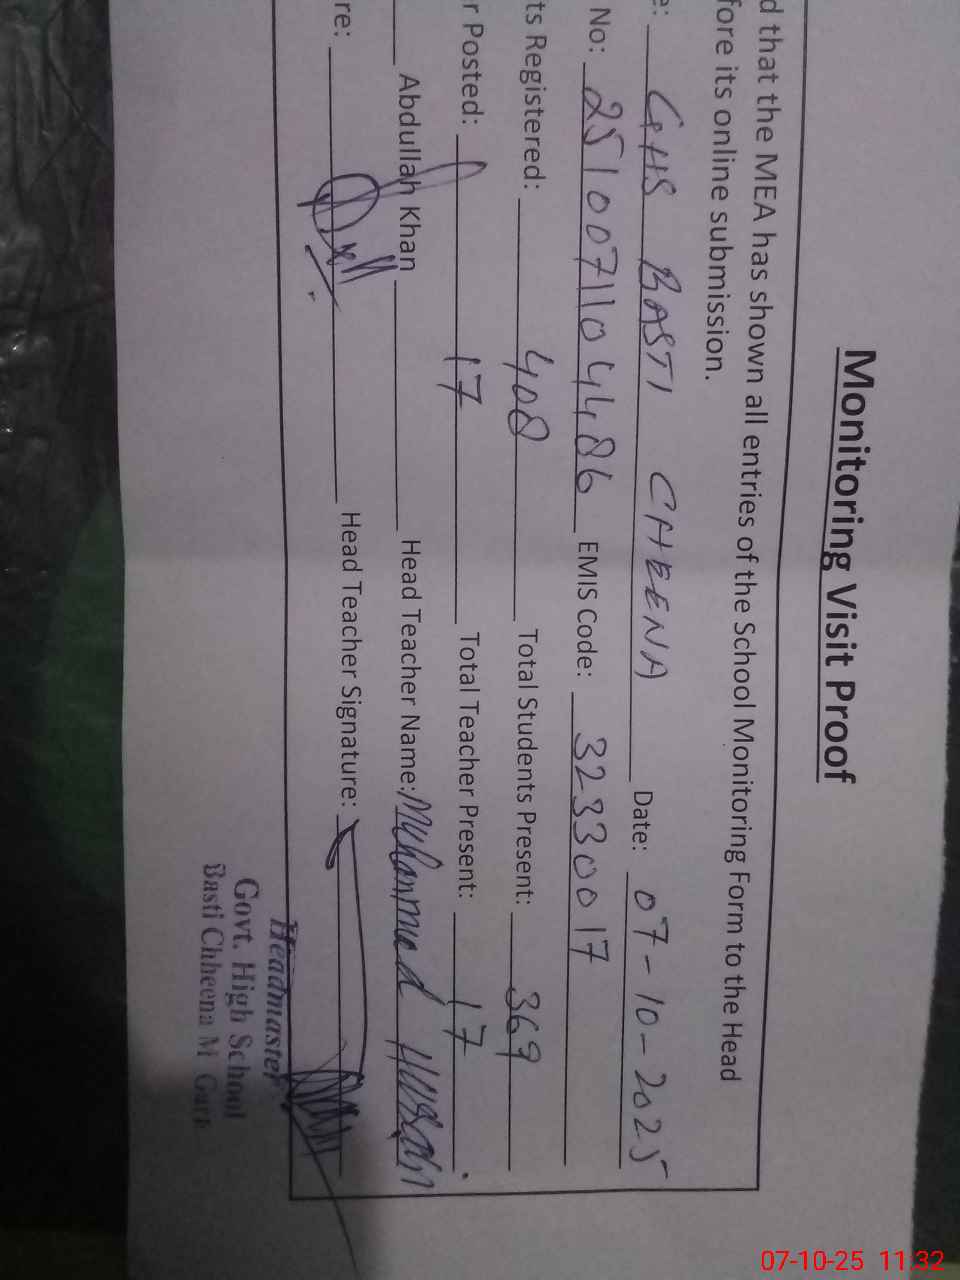 Monitoring Visit Proof
d that the MEA has shown all entries of the School Monitoring Form to the Head
fore its online submission.
e: GHS BASTI CHEENA Date: 07-10-2025
No: 251007110 4486 EMIS Code: 32330017
ts Registered: 408 Total Students Present: 369
r Posted: 17 Total Teacher Present: 17
Abdullah Khan Head Teacher Name: Muhammad Hussain
re: Head Teacher Signature:
Headmaster
Govt. High School
Basti Chheena M. Garh
07-10-25 11:32